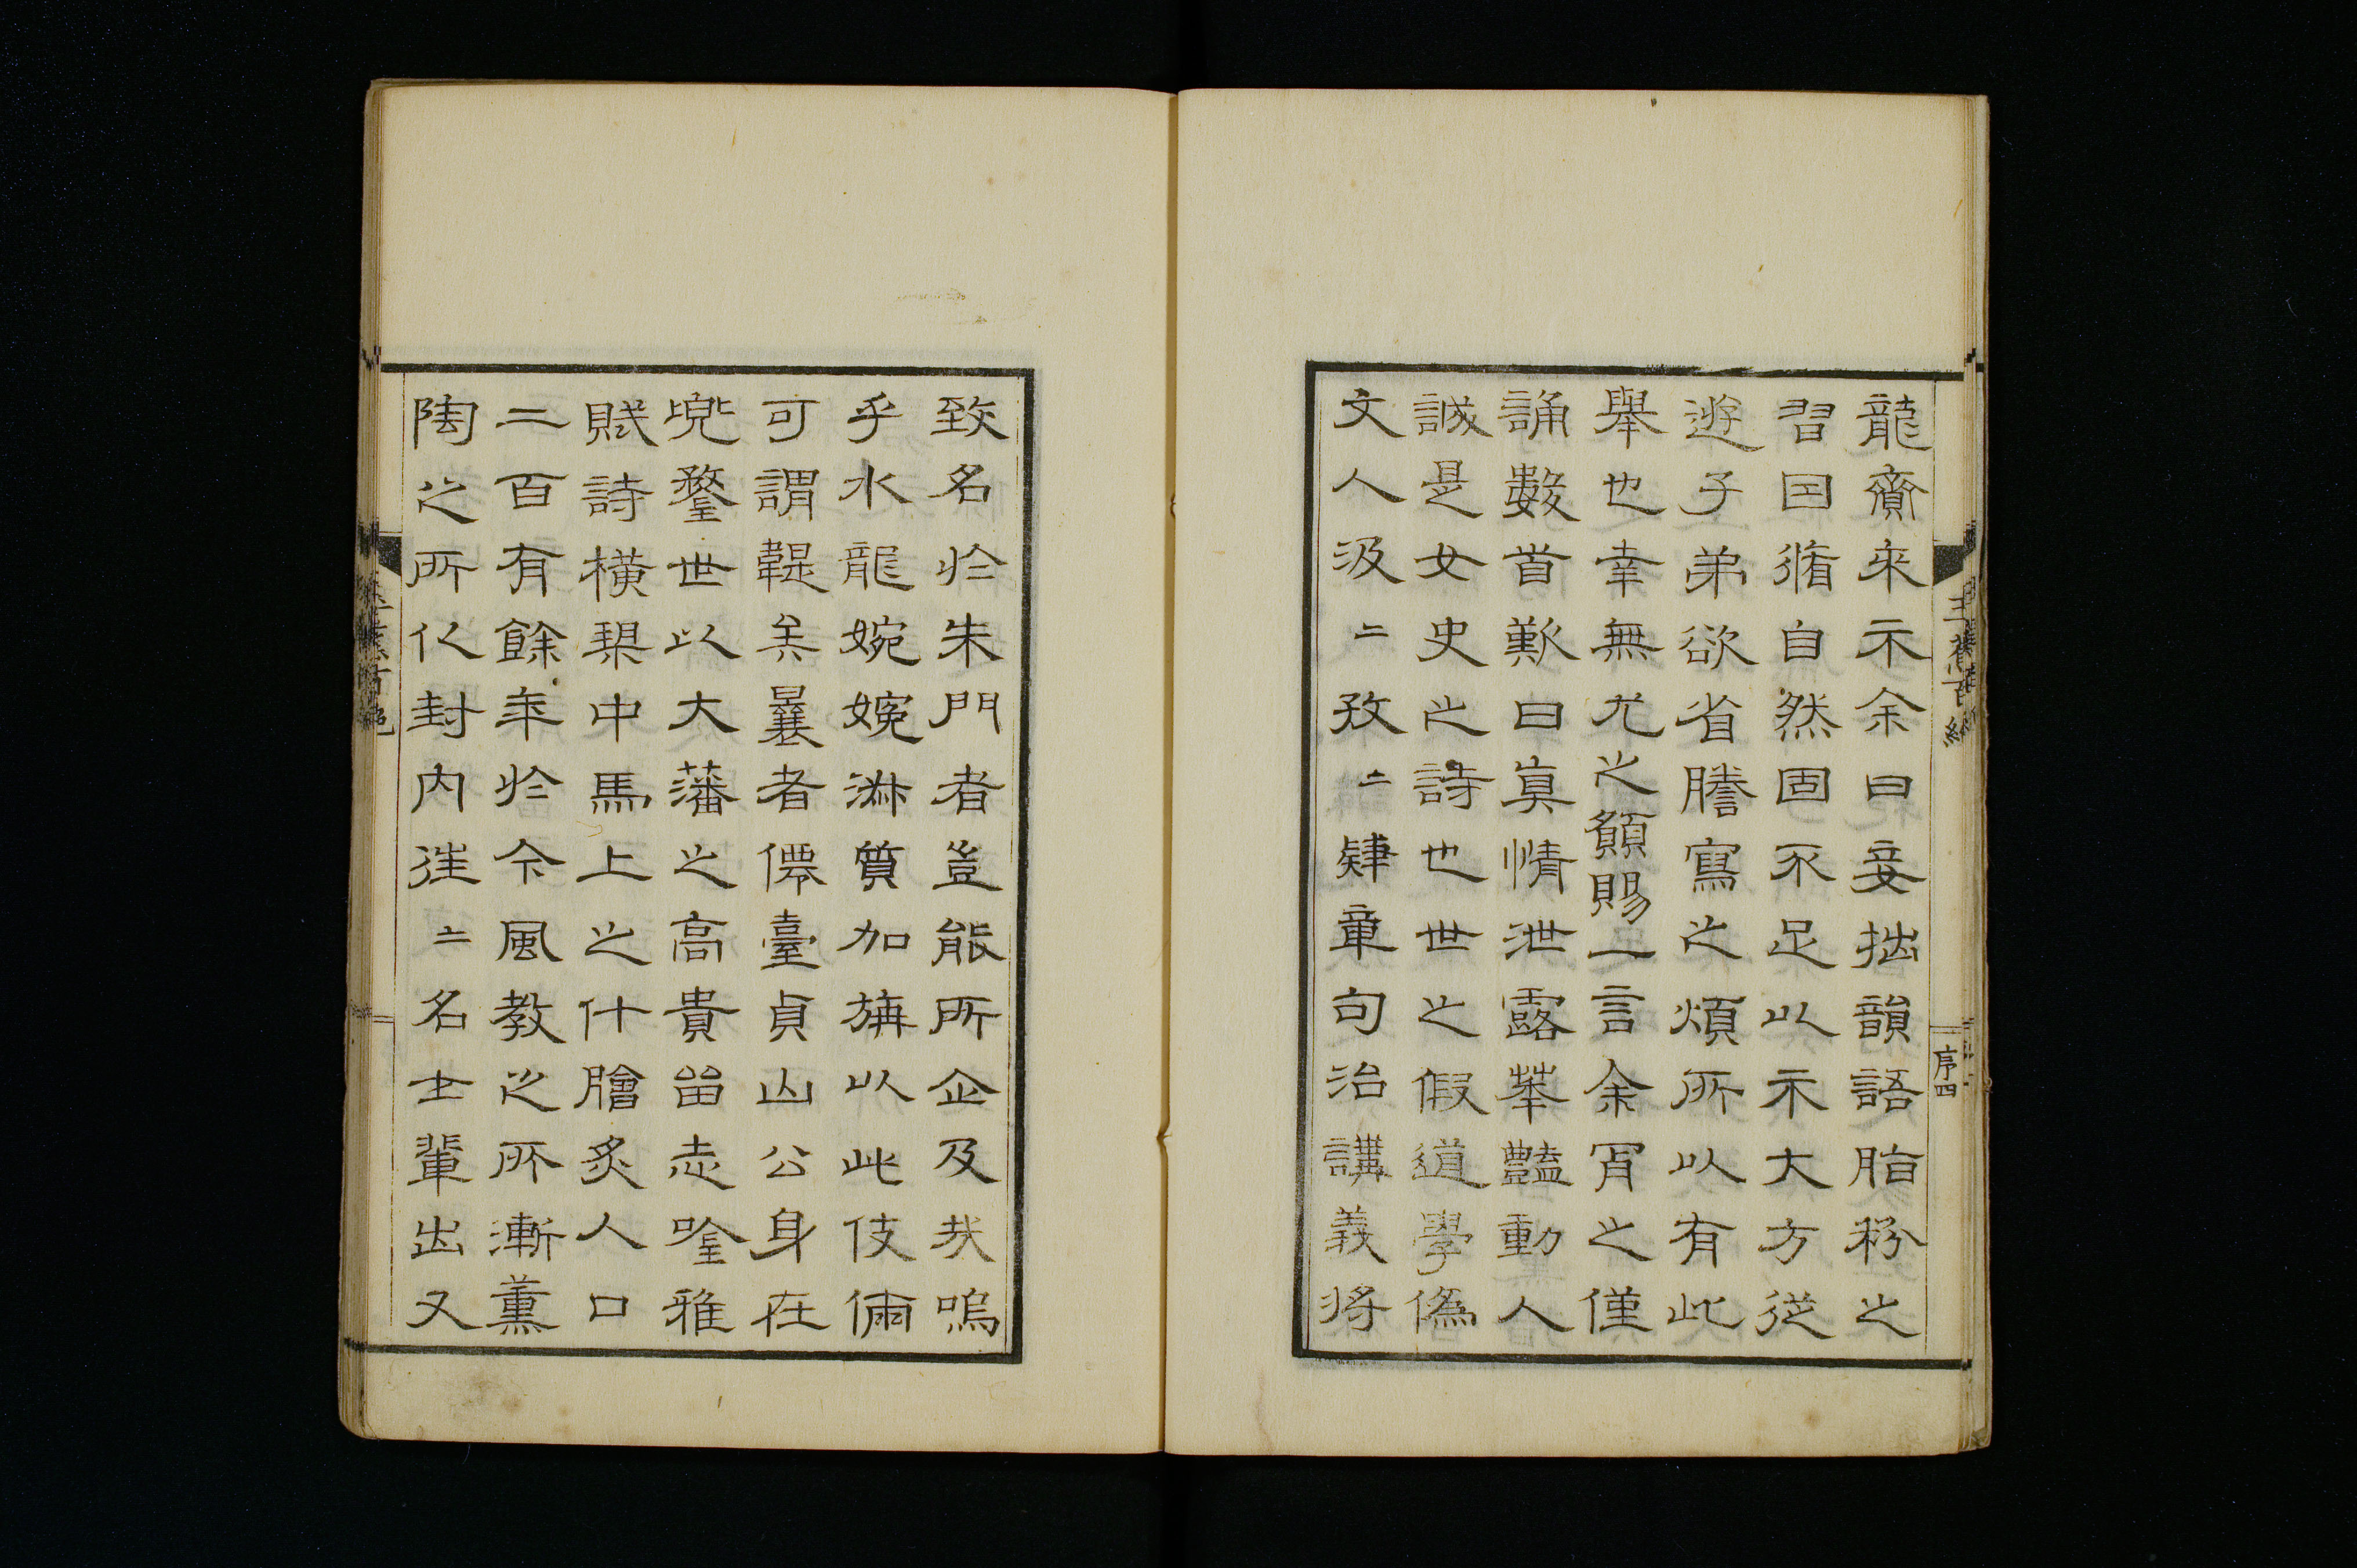 龍齎來示余曰妾拙韻語脂粉之
習因循自然固不足以示大方從
遊子弟欲省謄寫之煩所以有此
舉也幸無尤之願賜一言余胥之僅
誦數首歎曰眞情泄露華豔動人
誠是女史之詩也世之假道學僞
文人汲〻孜〻肄章句治講義將
序四
致名於朱門者豈能所企及哉嗚
乎水龍婉娩淋質加旃以此伎倆
可謂韙矣曩者僊臺貞山公身在
兜鍪世以大藩之高貴留志喹雅
賦詩橫槊中馬上之什膾炙人口
二百有餘年於今風教之所漸薰
陶之所化封内往〻名士輩出又